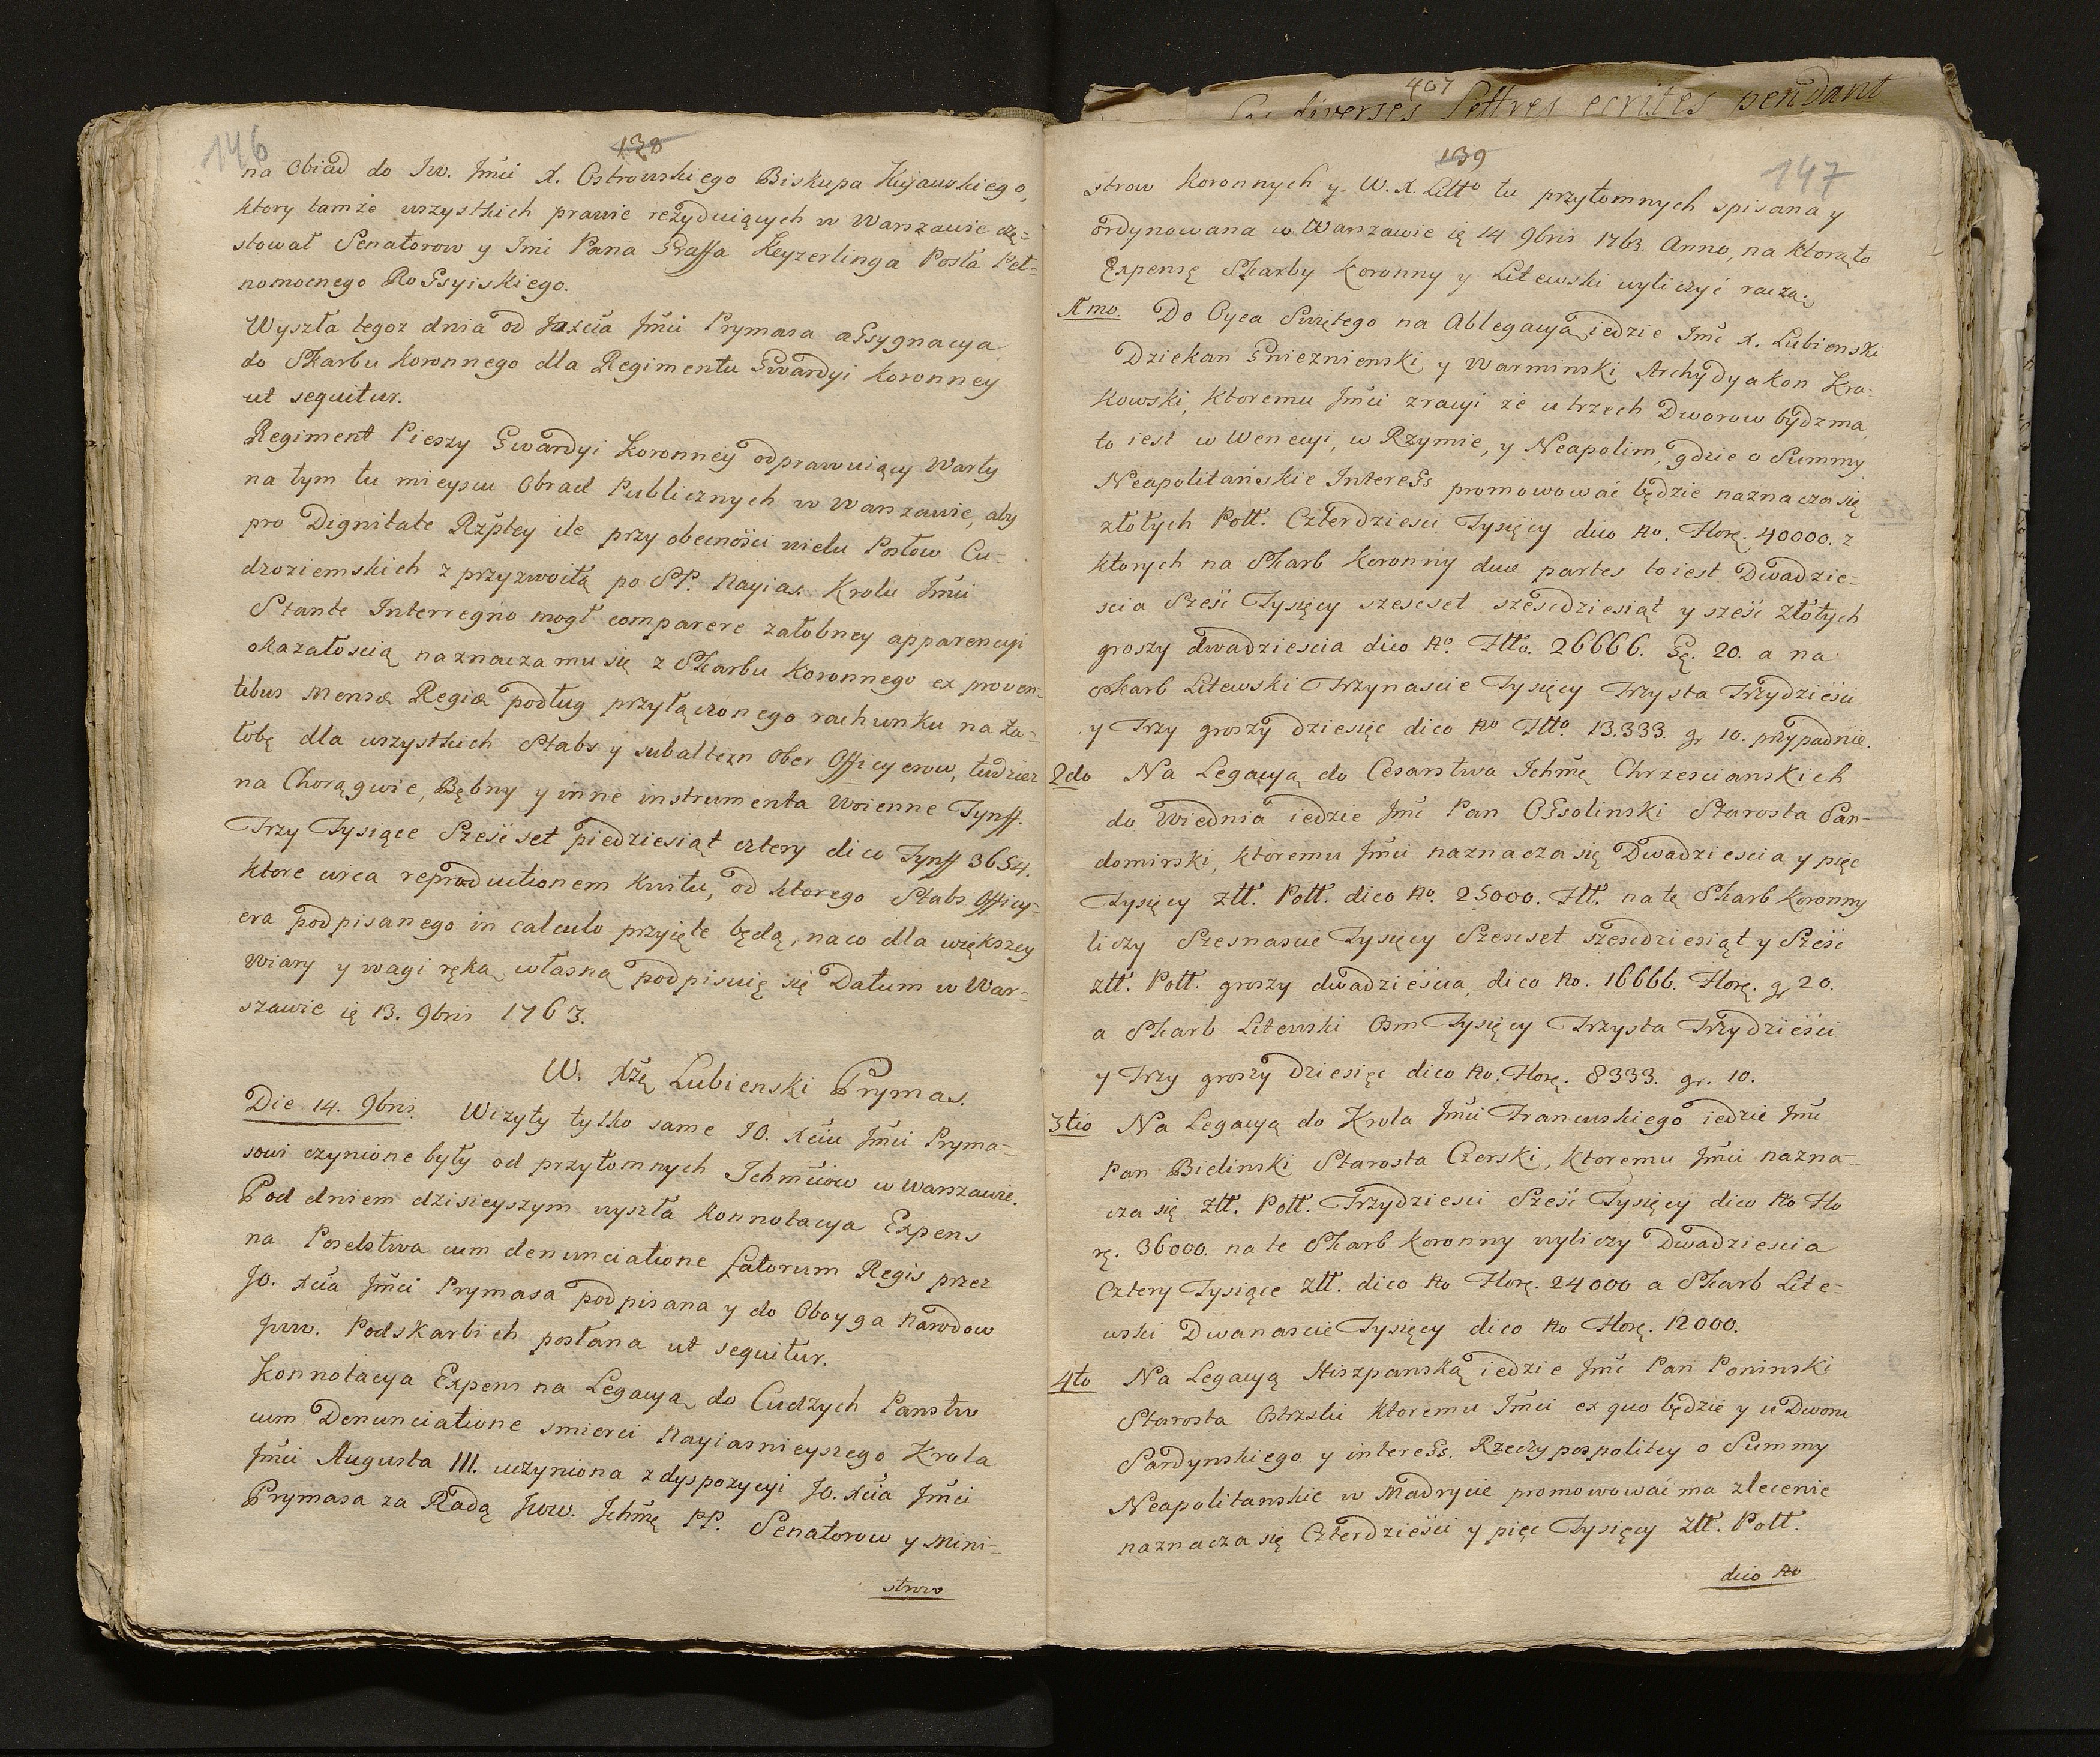 146
138
na Obiad do Jw. Jmći X. Ostrowskiego Biskupa Kujawskiego,
ktory tamże wszystkich prawie rezyduiących w Warszawie czę=
stował Senatorow y Jmći Pana Graffa Keyzerlinga Posła Peł=
nomocnego Rossyiskiego.
Wyszła tegoż dnia od Joxcia Jmći Prymasa assygnacya
do Skarbu koronnego dla Regimentu Gwardyi koronney
ut sequitur.
Regiment Pieszy Gwardyi Koronney odprawuiący Warty
na tym tu mieyscu Obrad Publicznych w Warszawie, aby
pro Dignitate Rzpltey ile przy obecności wielu Posłow Cu=
dzoziemskich z przyzwoitą po SP. Nayias. Krolu Jmći
Stante Interregno mogł comparere załobney apparencyi
okazałością naznacza mu się z Skarbu Koronnego ex proven=
tibus Mensæ Regiæ podług przyłączonego rachunku na ża=
łobę dla wszystkich Stabs y subaltern Ober Officyerow, tudzież
na Chorągwie, Bębny y inne instrumenta woienne Tynff.
Trzy Tysiące Sześć set piedziesiąt cztery dico Tynff 3654.
ktore circa reproductionem kwitu, od ktorego Stabs Officy=
era podpisanego in calculo przyięte będą, na co dla większey
wiary y wagi ręką własną podpisuię się Datum w War=
szawie ię 13. 9bris 1763.
W. Xżę Lubienski Prymas.
Die 14. 9bris. Wizyty tylko same JO. Xciu Jmći Pryma=
sowi czynione były od przytomnych Ichmciow w Warszawie.
Pod dniem dzisieyszym wyszła konnotacya Expens
na Poselstwa cum denunciatione Fatorum Regis przez
JO. Xcia Jmći Prymasa podpisana y do Oboyga Narodow
Jww. Podskarbich posłana ut sequitur.
Konnotacya Expens na Legacyą do Cudzych Panstw
cum Denunciatione smierci Nayiasnieyszego Krola
Jmći Augusta III. uczyniona z dyspozycyi JO. Xcia Jmći
Prymasa za Radą Jww. Ichmę PP. Senatorow y Mini=
strow
407
diverses lettres ecrites pendant
139
147
strow Koronnych y W. X Litto tu przytomnych spisana y
ordynowana w Warszawie ię 14 9bris 1763. Anno, na ktorą to
Expensę Skarby koronny y Litewski wyliczyć raczą.
Imo. Do Oyca Swiętego na Ablegacyą iedzie Jmć X. Lubienski
Dziekan Gnieznienski y Warminski Archydyakon Kra=
kowski, ktoremu Jmći z racyi że u trzech Dworow bydz ma,
to iest w Wenecyi, w Rzymie, y Neapolim, gdzie o Summy
Neapolitańskie Interess promowować będzie naznacza się
złotych Poll. Czterdziesci Tysięcy dico No. Florę. 40000. z
ktorych na Skarb Koronny duæ partes to iest Dwadzie=
scia Sześć Tysięcy szescset szescdziesiąt y sześć złotych
groszy dwadziescia dico No. Złło. 26666. Gę. 20. a na
Skarb Litewski Trzynascie Tysięcy Trzysta Trzydzieści
y Trzy groszy dziesięc dico No Złło. 13.333. gr 10. przypadnie.
2do Na Legacyą do Cesarstwa Ichmę Chrzescianskich
do Wiednia iedzie Jmć Pan Ossolinski Starosta San=
domirski, ktoremu Jmći naznacza się Dwadziescia y pięc
Tysięcy złł. Poll. dico No. 25000. Złł. na tę Skarb Koronny
liczy Szesnascie Tysięcy Szescset szescdziesiąt y Sześć
złł. Poll. groszy dwadzieścia, dico No. 16666. Florę. gr 20.
a Skarb Litewski Osm Tysięcy Trzysta Trzydzieści
y Trzy groszy Dziesięc dico No. Florę. 8333. gr. 10.
3tio Na Legacyą do Krola Jmći Francuskiego iedzie Jmć
Pan Bielinski Starosta Czerski, ktoremu Jmći nazna=
cza się złł. Poll. Trzydziesci Sześć Tysięcy dico No Flo
rę. 36000. na te Skarb koronny wyliczy Dwadziescia
Cztery Tysiące złł. dico No Florę. 24000 a Skarb Lite=
wski Dwanascie Tysięcy dico No Florę. 12000.
4to Na Legacyą Hiszpanską iedzie Jmć Pan Poninski
Starosta Ostrzski ktoremu Jmći ex quo będzie y u Dworu
Sardynskiego y interess. Rzeczypospolitey o Summy
Neapolitanskie w Madrycie promowować ma zlecenie
naznacza się Czterdzieści y pięc Tysięcy złł. Poll.
dico No